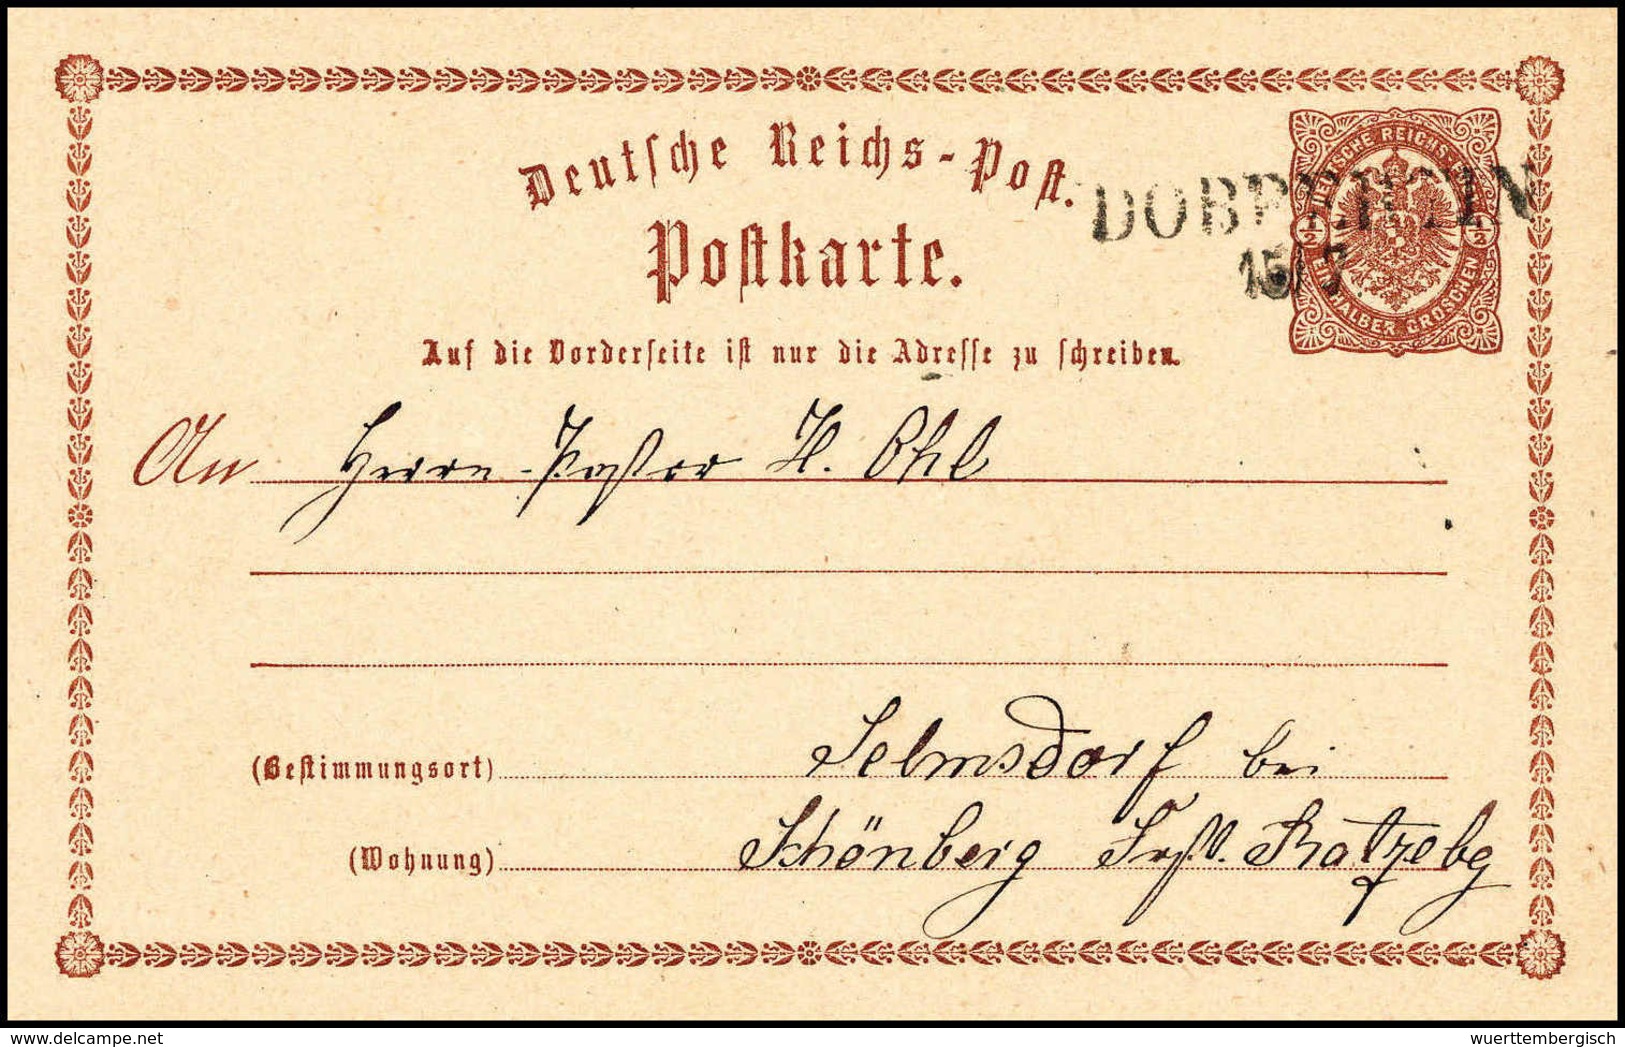 Deutsche Reichs-Post.
Postkarte.
DOBBERTIN
15/7
DEUTSCHE REICHS
½ ½
EIN HALBER GROSCHEN
Auf die Vorderseite ist nur die Adresse zu schreiben.
An Herrn Pastor H. Ohl
(Bestimmungsort) Selmsdorf bei
(Wohnung) Schönberg Frst. Ratzebg
wuerttembergisch